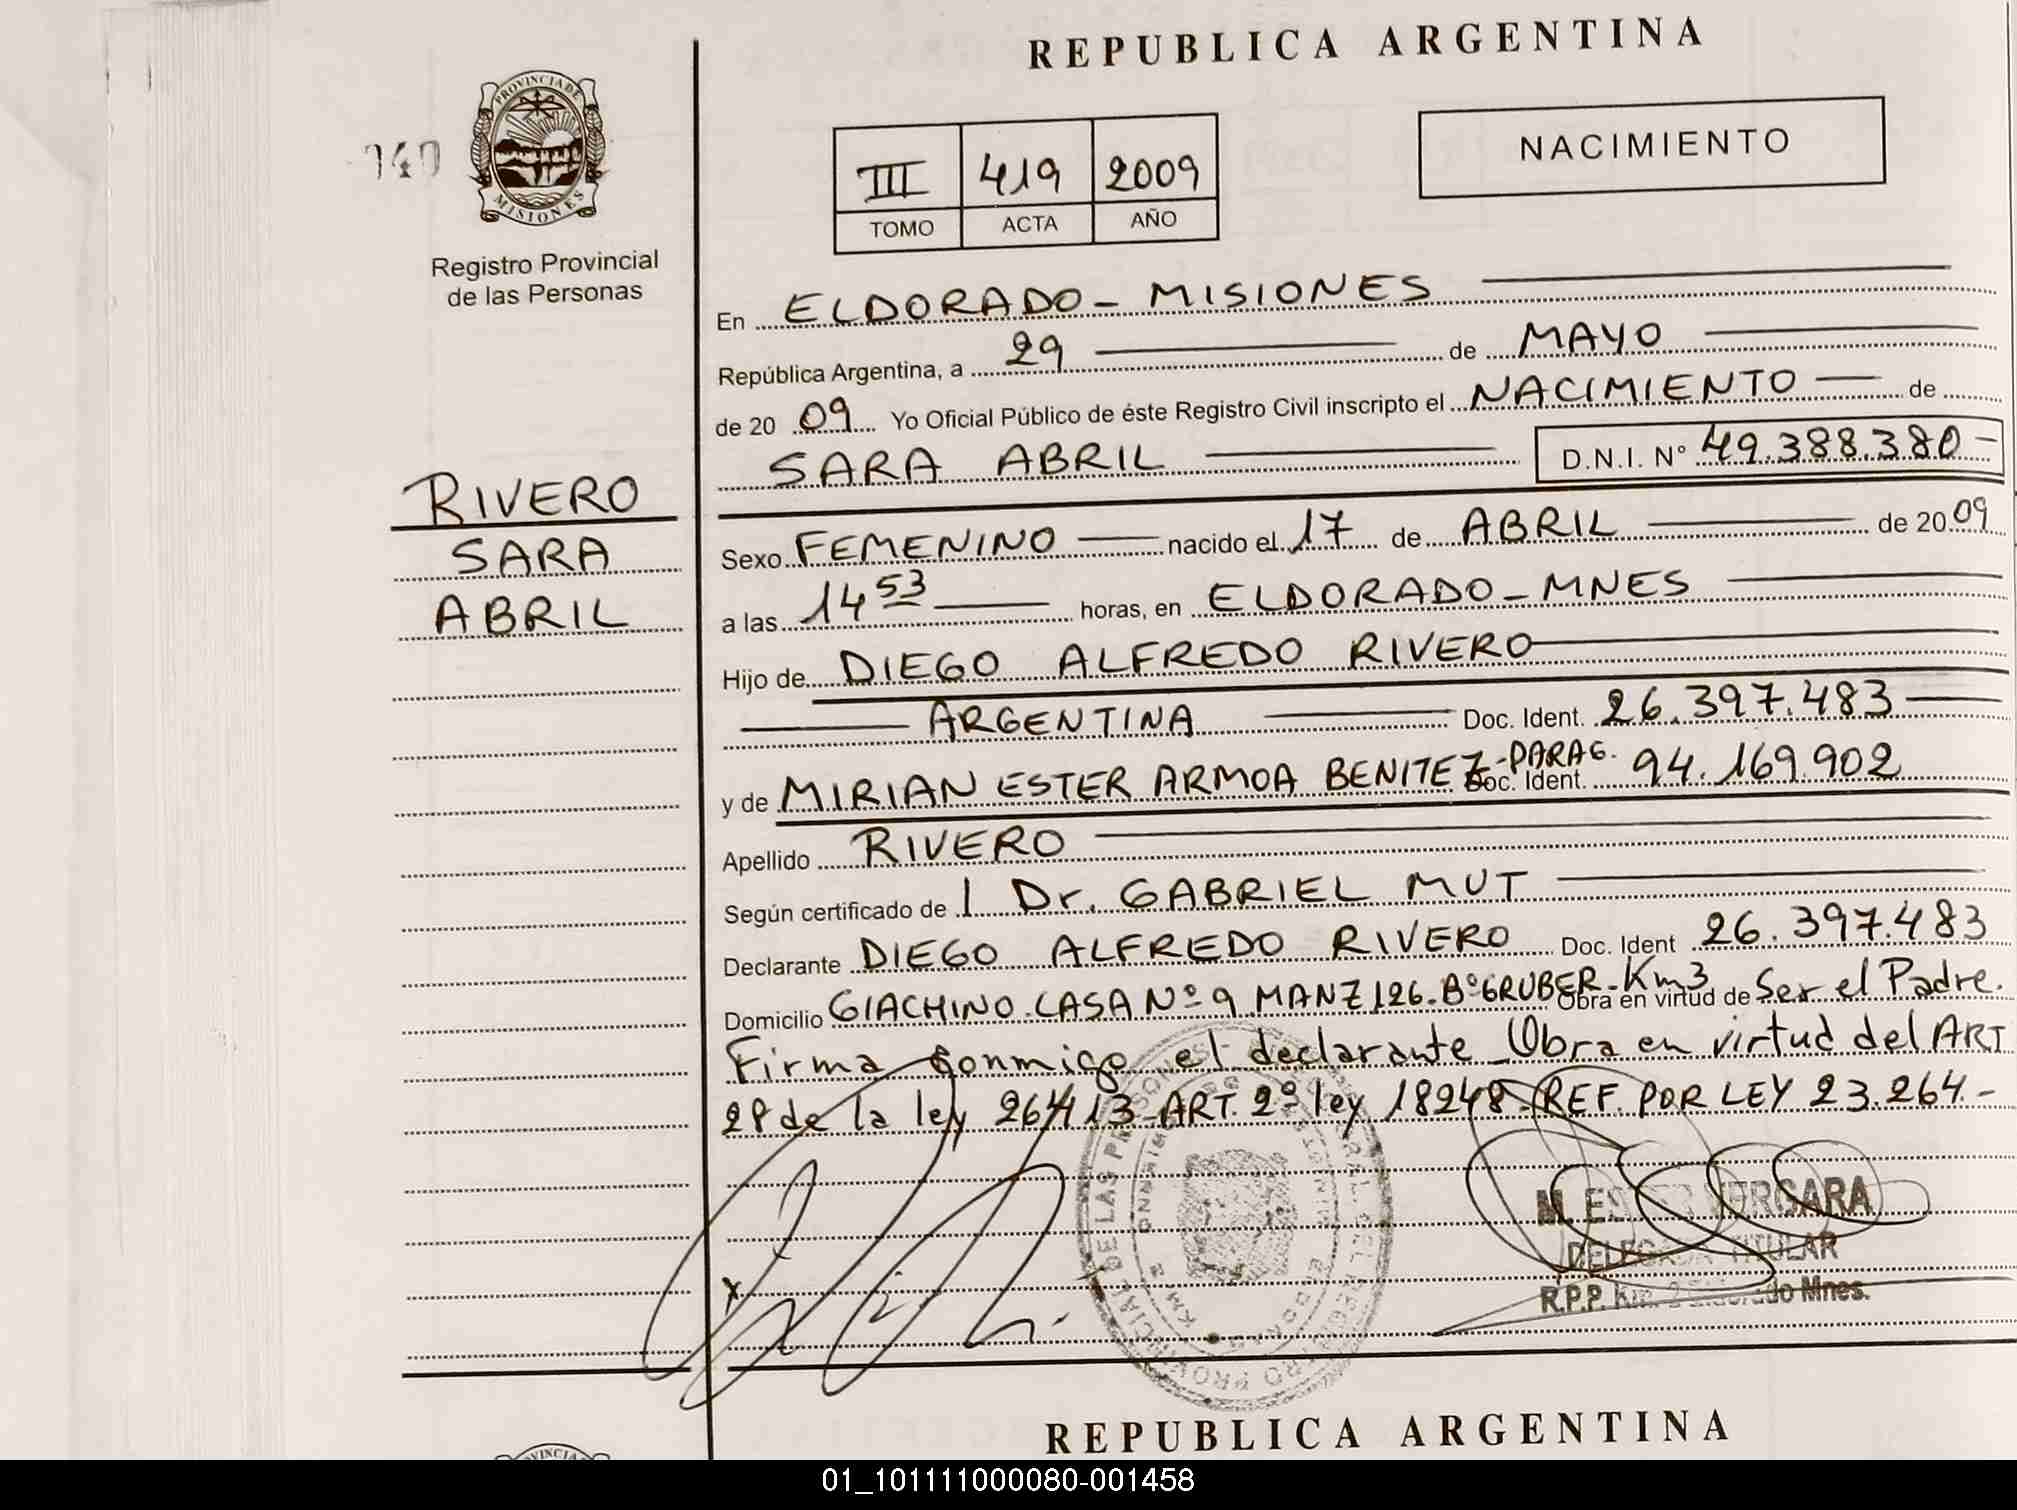 REPUBLICA ARGENTINA
140
PROVINCIA DE
MISIONES
Registro Provincial
de las Personas
III 419 2009
TOMO ACTA AÑO
NACIMIENTO
En ELDORADO - MISIONES
República Argentina, a 29 de MAYO
de 20 09 Yo Oficial Público de éste Registro Civil inscripto el NACIMIENTO de
SARA ABRIL D.N.I. N° 49.388.380-
RIVERO
SARA
ABRIL
Sexo FEMENINO nacido el 17 de ABRIL de 20 09
a las 14 53 horas, en ELDORADO - MNES
Hijo de DIEGO ALFREDO RIVERO
ARGENTINA Doc. Ident. 26.397.483
y de MIRIAN ESTER ARMOA BENITEZ - PARAG. Doc. Ident. 94.169.902
Apellido RIVERO
Según certificado de l Dr. GABRIEL MUT
Declarante DIEGO ALFREDO RIVERO Doc. Ident 26.397.483
Domicilio GIACHINO. CASA Nº 9 MANZ 126. Bº GRUBER - Km 3 Obra en virtud de Ser el Padre.
Firma conmigo el declarante Obra en virtud del ART
28 de la ley 26413 - ART. 2º ley 18248 - REF. POR LEY 23.264.-
M. ESTER VERGARA
TITULAR
R.P.P. Km. 2 Eldorado Mnes.
REPUBLICA ARGENTINA
01_101111000080-001458